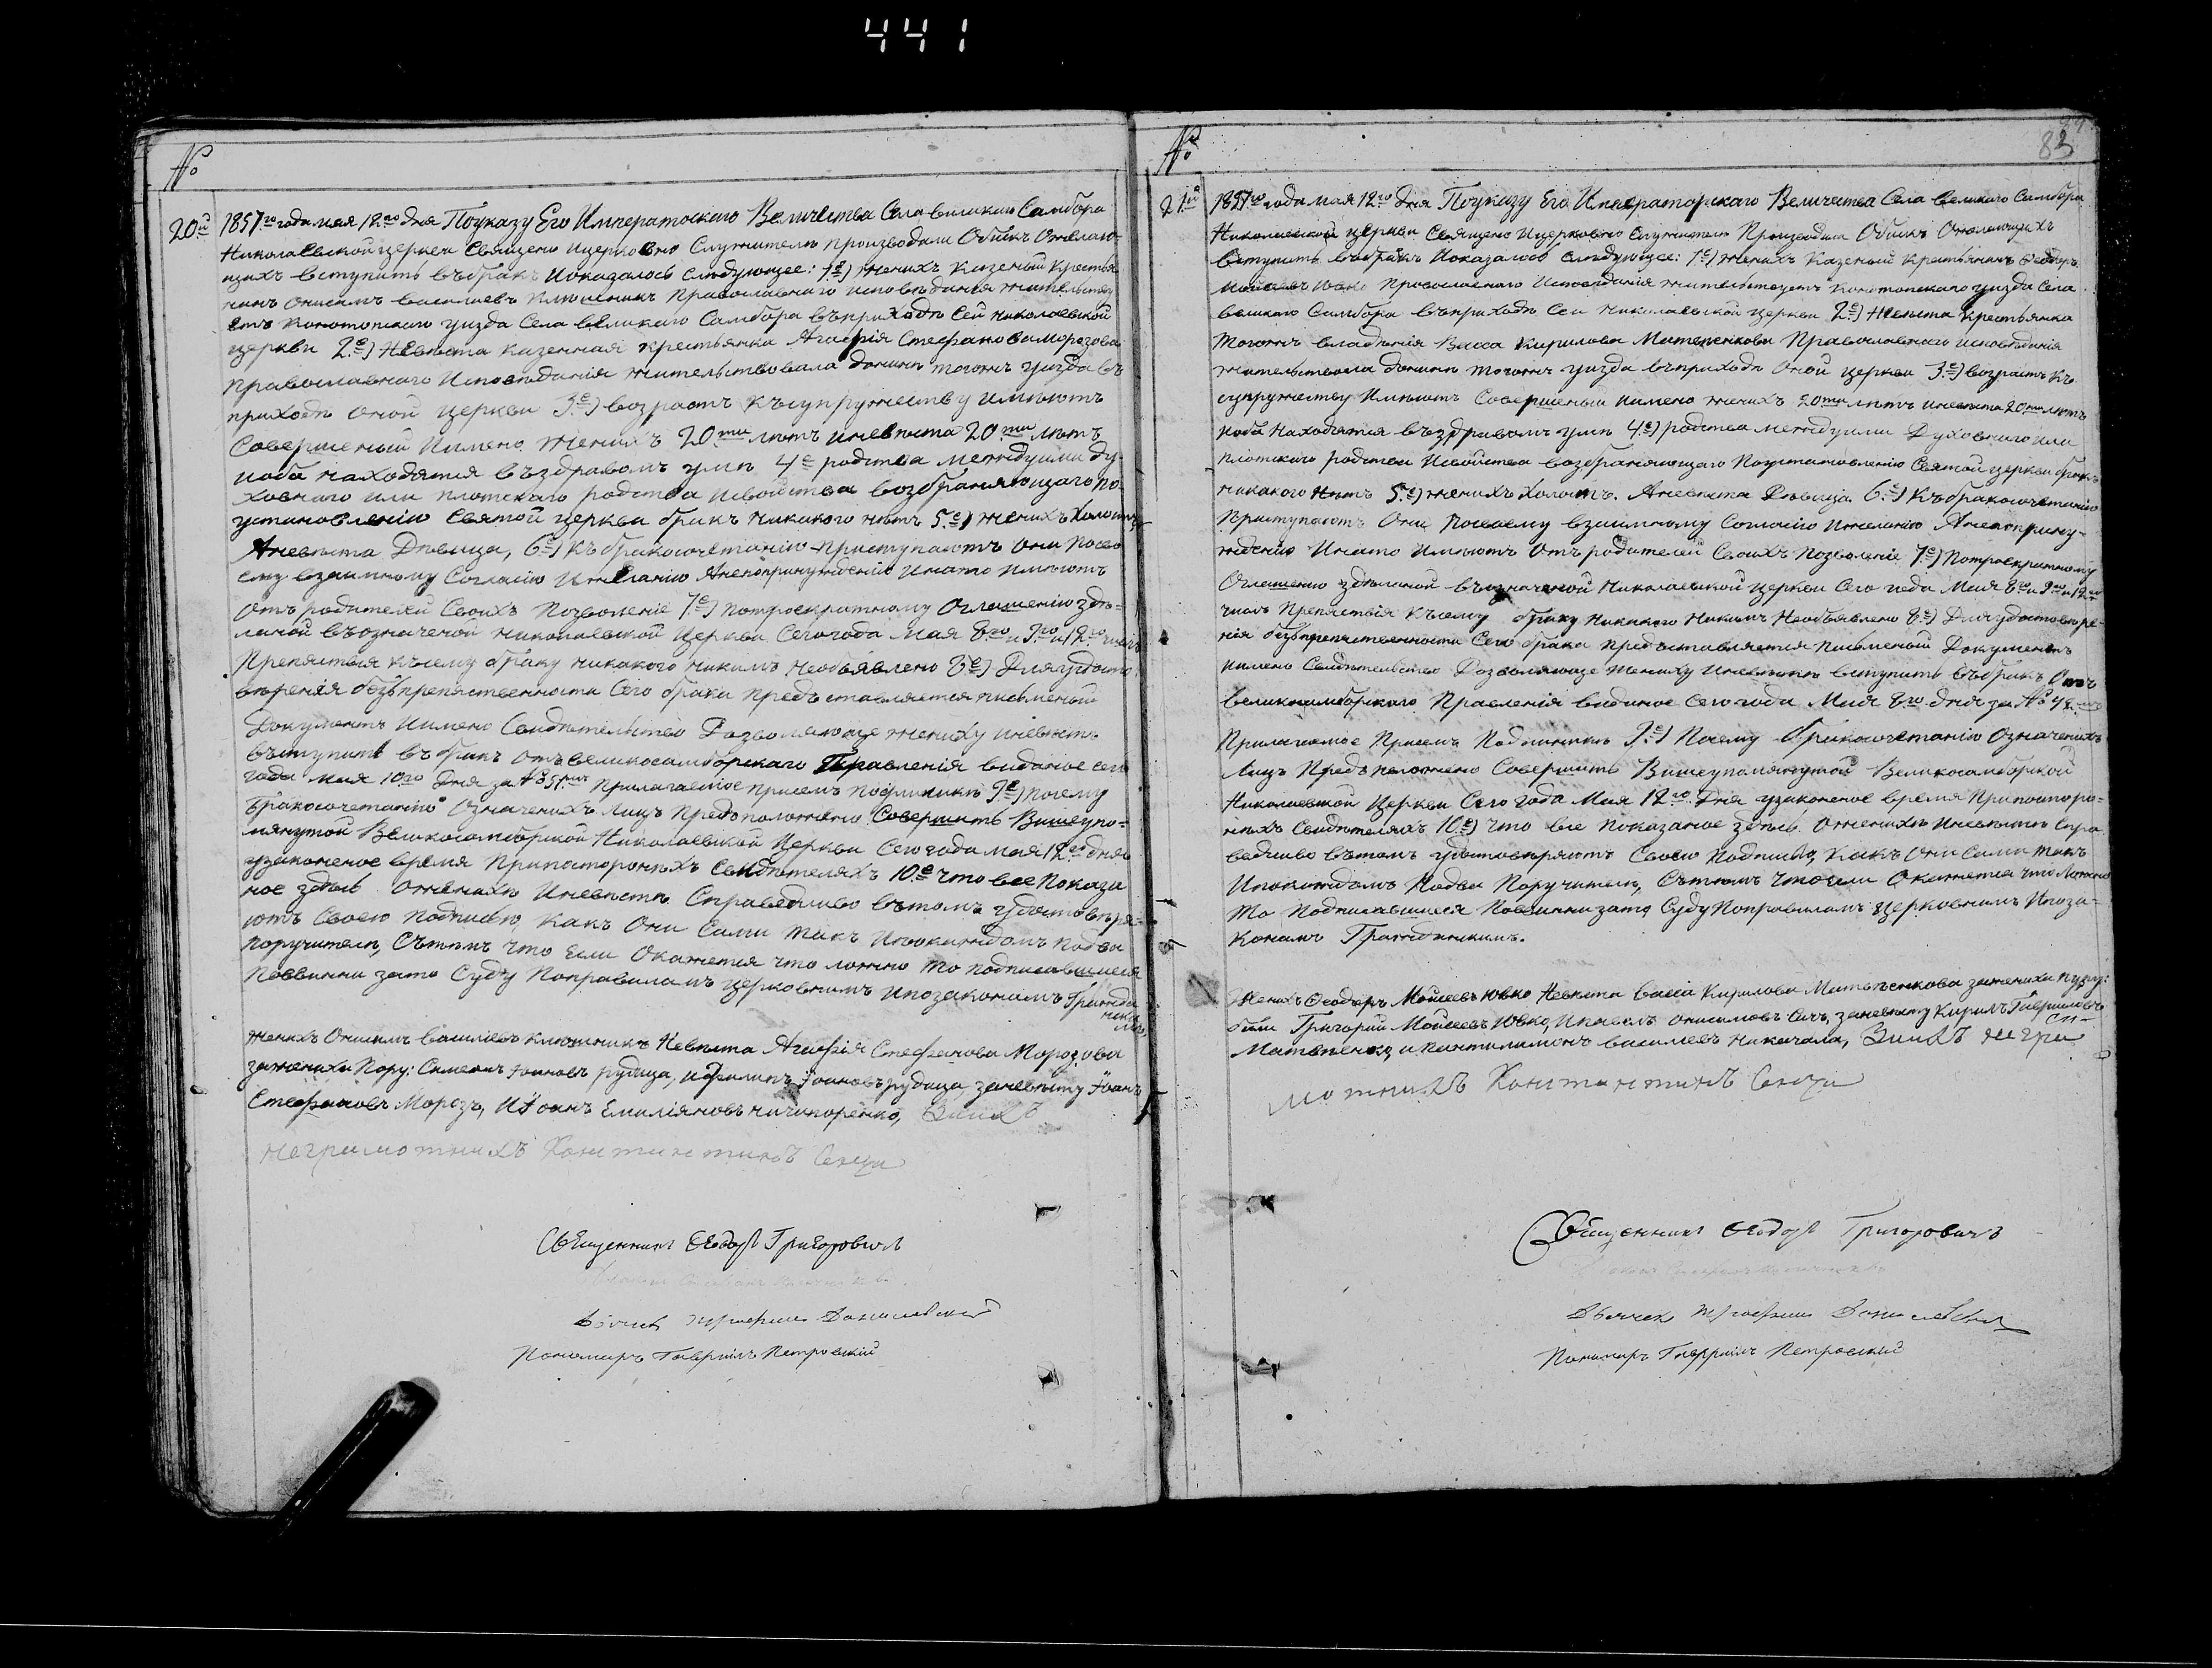 441
№
20й 1857го года мая 12го дня Поуказу Его Императоскаго Величества Села великаго Самбора
Николаевской церкви Священо ицерковно Служители производили Обискъ Ожелаю-
щихъ вступить въбракъ ипоказалось следующее: 1е) женихъ Казеный Крестья
нинъ Онисимъ василиевъ Ключникъ Православнаго исповѣданія жительству
етъ Конотопскаго уизда Села великаго Самбора въприходѣ Сей николаевской
церкви 2е) Невѣста казенная крестьянка Агафія Стефанова морозова
православнаго Исповѣданія жительствовала донинѣ тогожъ уизда въ
приходѣ оной церкви 3е) возрастъ къ супружеству имѣютъ
Совершеный Иимено женихъ 20ти лѣтъ иневѣста 20ти лѣтъ
иоба находятся въздравомъ умѣ 4е родства междуими ду-
ховнаго или плотскаго родства исвойства возбраняющаго по-
установленію Святой церкви бракъ никакого нѣтъ 5е) женихъ Холостъ
Аневѣста Дѣвица, 6е) Къ бракосочетанію приступаютъ они Посво
ему взаимному Согласію Ижеланію Анепопринужденію Инато имѣютъ
Отъ родителей Своихъ Позволеніе 7е) Потроекратному Оглашенію здѣ-
ланой въозначеной николаевской Церкви Сегогода мая 8го и 9го и 12го числъ
Препятствія къ сему браку никакого никимъ необъявлено 8е) Дляудосто
вѣренія безъпрепятственности Сего брака предъставляется письменый
Документъ Иимено Свидѣтельство Дозволяюще жениху иневѣстѣ
въступить въ бракъ отъ великосамборскаго Правленія виданое сего
года мая 10го Дня за № 51 Прилагаемое присемъ подлиникъ 9е) Посему
бракосочетанію Означенихъ Лицъ Предположено Совершить Вишеупо-
мянутой Великосамборской Николаевской Церкви Сего года мая 12го дня
узаконеное время Припостороннѣхъ Свидѣтеляхъ 10е что все Показа
ное здѣсь Оженихѣ Иневѣстѣ Справедливо вътомъ удостовѣря-
ютъ Своею подписью, какъ Они Сами такъ Ипокаждомъ подва
поручители, Сътимъ что Если Окажется что ложно то подписавшиеся
Повинни зато Суду Поправиламъ церковнимъ Ипозаконамъ Гражда
нскимъ
женихъ Онисимъ василіевъ ключникъ Невѣста Агафія Стефанова Морозова
зажениха Пору: Симеонъ Іоановъ рудица, ифилипъ Іоановъ рудица, заневѣсту Іоанъ
Стефановъ Морозъ, Иіоанъ Емиліяновъ ничипоренко,
неграмотнихъ Константинъ
Священникъ Феодоръ Григоровичъ
Данилевский
Пономарь Гавриилъ Петровский
№
83
21й 1857го года мая 12го дня Поуказу Его Императорскаго Величества Села великаго Самбора
Николаевской церкви Священо Ицерковно Служители Производили Обискъ Ожелающихъ
вступить въбракъ Ипоказалось слѣдующее: 1е) женихъ Казеный Крестьянинъ Феодоръ
Мойсеевъ Ювко Православнаго Исповѣданія жительствуетъ Конотопскаго уизда Села
великаго Самбора въприходѣ Сеи николаевской церкви 2е) Невѣста Крестьянка
тогожъ владѣнія Васса Кирилова Матвѣенкова Православнаго исповѣданія
жительствовала донинѣ тогожъ уизда въприходѣ Оной церкви 3е) возрастъ къ
супружеству Имѣютъ Совершеный иимено женихъ 20ти лѣтъ иневѣста 20ти лѣтъ
иоба Находятся въздравомъ умѣ 4е) родства междуими Духовнаго или
плотскаго родства Исвойства возбраняющаго Поустановленію Святой церкви бракъ
никакого нѣтъ 5е) женихъ Холостъ. Аневѣста Дѣвица. 6е) Къ бракосочетанію
Приступаютъ Они Посвоему взаимному Согласію Ижеланію Анепоприну-
жденію Инато Имѣютъ Отъ родителей Своихъ Позволеніе 7е) Потроекратному
Оглашенію здѣланой въозначеной Николаевской церкви Сего года Мая 8го и 9го и 12го
числъ Препятствія Късему браку Никакого Никимъ Необъявлено 8е) Дляудостовѣре-
нія безъпрепятственности Сего брака предъставляется письменый Документъ
иимено Свидѣтельство Дозволяюще Жениху Иневѣстѣ вступить въбракъ Отъ
великосамборскаго Правленія виданое Сего года Мая 8го дня за № 48
Прилагаемое Присемъ Подлиникъ 9е) Посему бракосочетанію Означенихъ
Лицъ Предъположено Совершить Вишеупомянутой Великосамборской
Николаевской Церкви Сего года Мая 12го Дня узаконеное время Припосторо-
нѣхъ Свидѣтеляхъ 10е) что все Показаное здѣсь Оженихѣ Иневѣстѣ Спра-
ведливо вътомъ удостовѣряютъ Своею Подписью, какъ Они Сами такъ
Ипокаждомъ Подва Поручители, Сътимъ что если Окажется что Ложно
то Подписавшиеся Повинни зато Суду Поправиламъ Церковнимъ Ипоза-
конамъ Гражданскимъ.
Женихъ Феодоръ Мойсеевъ Ювко Невѣста Васса Кирилова Матвѣенкова зажениха пору:
били Григорий Мойсеевъ Ювко, Ипавелъ онисимовъ Сичъ, заневѣсту Кирилъ Гавриловъ
Матвѣенко, и Пантилимонъ василиевъ Никачала, негра
мотнихъ Константинъ
Священникъ Феодоръ Григоровичъ
Дьячекъ Данилевский
Пономарь Гавриилъ Петровский